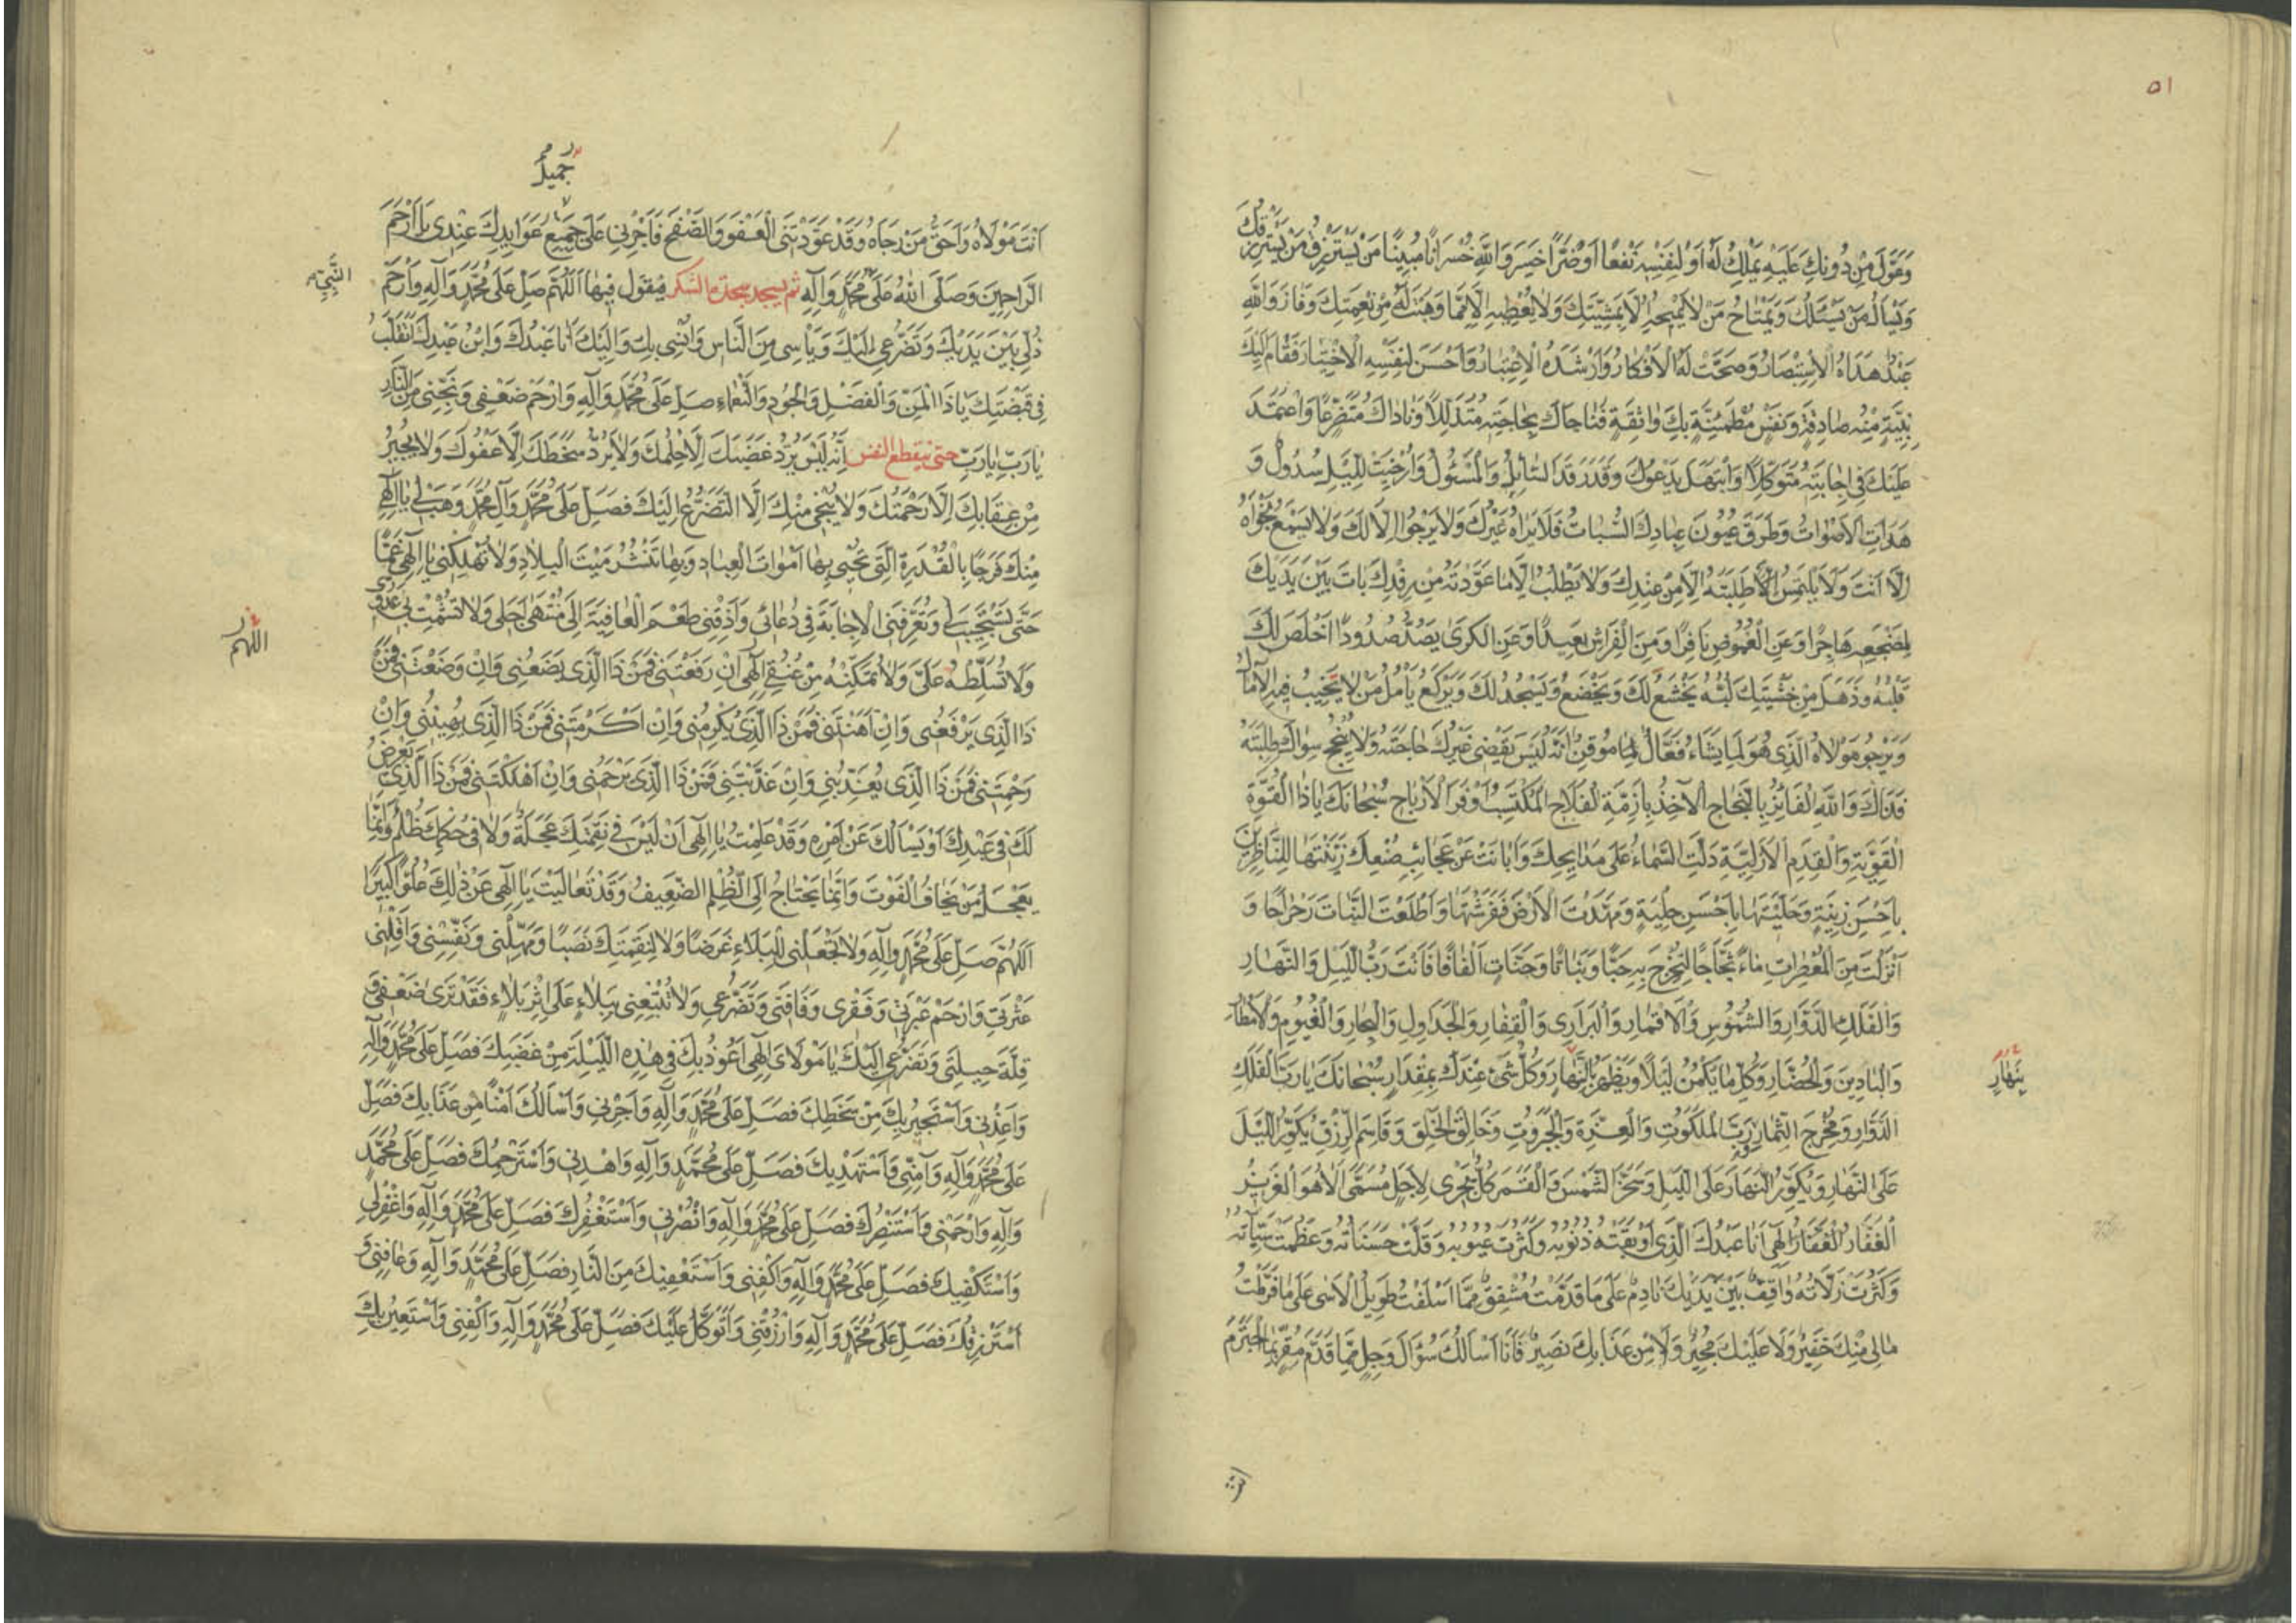 ٥١
وَعَوَّلَ مِنْ دُونِكَ عَلَيْهِ يَمْلِكُ لَهُ اَوْ لِنَفْسِهِ نَفْعًا اَوْ ضَرًّا خَسِرَ وَاللّٰهِ خُسْرَانًا مُبِينًا مَنْ يَسْتَرْزِقُ مَنْ يَسْتَرْزِقُكَ
وَيَسْأَلُ مَنْ يَسْئَلُكَ وَيَمْتَاحُ مَنْ لَا يَمِيْحُهُ اِلَّا بِمَشِيَّتِكَ وَلَا يُعْطِيهِ اِلَّا مِمَّا وَهَبْتَ لَهُ مِنْ نِعْمَتِكَ وَفَازَ وَاللّٰهِ
عَبْدٌ هَدَاهُ الْاِسْتِبْصَارُ وَصَحَّتْ لَهُ الْاَفْكَارُ وَاَرْشَدَهُ الْاِعْتِبَارُ وَاَحْسَنَ لِنَفْسِهِ الْاِخْتِيَارَ فَقَامَ اِلَيْكَ
بِنِيَّةٍ مِنْهُ صَادِقَةٍ وَنَفْسٍ مُطْمَئِنَّةٍ بِكَ وَاثِقَةٍ فَنَاجَاكَ بِحَاجَتِهِ مُتَذَلِّلًا وَنَادَاكَ مُتَضَرِّعًا وَاعْتَمَدَ
عَلَيْكَ فِي اِجَابَتِهِ مُتَوَكِّلًا وَابْتَهَلَ يَدْعُوكَ وَقَدْ رَقَدَ السَّائِلُ وَالْمَسْئُولُ وَاُرْخِيَتْ لِلَّيْلِ سُدُولٌ وَ
هَدَأَتِ الْاَصْوَاتُ وَطَرَقَ عُيُونَ عِبَادِكَ السُّبَاتُ فَلَا يَرَاهُ غَيْرُكَ وَلَا يَرْجُوا اِلَّا لَكَ وَلَا يَسْمَعُ نَجْوَاهُ
اِلَّا اَنْتَ وَلَا يَلْتَمِسُ طَلِبَتَهُ اِلَّا مِنْ عِنْدِكَ وَلَا يَطْلُبُ اِلَّا مَا عَوَّدْتَهُ مِنْ رِفْدِكَ بَاتَ بَيْنَ يَدَيْكَ
لِمَضْجَعِهِ هَاجِرًا وَعَنِ الْغُمُوضِ نَافِرًا وَمِنَ الْفِرَاشِ بَعِيدًا وَعَنِ الْكَرَى يَصُدُّ صُدُودًا اَخْلَصَ لَكَ
قَلْبُهُ وَذَهَلَ مِنْ خَشْيَتِكَ لُبُّهُ يَخْشَعُ لَكَ وَيَخْضَعُ وَيَسْجُدُ لَكَ وَيَرْكَعُ يَأْمُلُ مَنْ لَا تَخِيبُ فِيهِ الْآمَالُ
وَيَرْجُو مَوْلَاهُ الَّذِي هُوَ لِمَا يَشَاءُ فَعَّالٌ مُوقِنٌ اَنَّهُ لَيْسَ يَقْضِي غَيْرُكَ حَاجَتَهُ وَلَا يُنْجِحُ سِوَاكَ طَلِبَتَهُ
فَذَاكَ وَاللّٰهِ الْفَائِزُ بِالنَّجَاحِ الْآخِذُ بِاَزِمَّةِ الْفَلَاحِ الْمُكْتَسِبُ اَوْفَرَ الْاَرْبَاحِ سُبْحَانَكَ يَا ذَا الْقُوَّةِ
الْقَوِيَّةِ وَالْقِدَمِ الْاَزَلِيَّةِ دَلَّتِ السَّمَاءُ عَلَى مَدَايِحِكَ وَاَبَانَتْ عَنْ عَجَائِبِ صُنْعِكَ زَيَّنْتَهَا لِلنَّاظِرِينَ
بِاَحْسَنِ زِينَةٍ وَحَلَّيْتَهَا بِاَحْسَنِ حِلْيَةٍ وَمَهَّدْتَ الْاَرْضَ فَفَرَشْتَهَا وَاَطْلَعْتَ النَّبَاتَ رَجْرَاجًا وَ
اَنْزَلْتَ مِنَ الْمُعْصِرَاتِ مَاءً ثَجَّاجًا لِتُخْرِجَ بِهِ حَبًّا وَنَبَاتًا وَجَنَّاتٍ اَلْفَافًا فَاَنْتَ رَبُّ اللَّيْلِ وَالنَّهَارِ
وَالْفَلَكِ الدَّوَّارِ وَالشُّمُوسِ وَالْاَقْمَارِ وَالْبَرَارِي وَالْقِفَارِ وَالْجَدَاوِلِ وَالْبِحَارِ وَالْغُيُومِ وَالْاَمْطَارِ
وَالْبَادِينَ وَالْحُضَّارِ وَكُلِّ مَا يَكْمُنُ لَيْلًا وَيَظْهَرُ بِالنَّهَارِ وَكُلُّ شَيْءٍ عِنْدَكَ بِمِقْدَارٍ سُبْحَانَكَ يَا رَبَّ الْفَلَكِ
بِنَهَارٍ
الدَّوَّارِ وَمُخْرِجَ الثِّمَارِ رَبَّ الْمَلَكُوتِ وَالْعِزَّةِ وَالْجَبَرُوتِ وَخَالِقَ الْخَلْقِ وَقَاسِمَ الرِّزْقِ يُكَوِّرُ اللَّيْلَ
عَلَى النَّهَارِ وَيُكَوِّرُ النَّهَارَ عَلَى اللَّيْلِ وَسَخَّرَ الشَّمْسَ وَالْقَمَرَ كُلٌّ يَجْرِي لِاَجَلٍ مُسَمًّى اَلَا هُوَ الْعَزِيزُ
الْغَفَّارُ اِلٰهِي اَنَا عَبْدُكَ الَّذِي اَوْبَقَتْهُ ذُنُوبُهُ وَكَثُرَتْ عُيُوبُهُ وَقَلَّتْ حَسَنَاتُهُ وَعَظُمَتْ سَيِّئَاتُهُ
وَكَثُرَتْ زَلَّاتُهُ وَاقِفٌ بَيْنَ يَدَيْكَ نَادِمٌ عَلَى مَا قَدَّمْتُ مُشْفِقٌ مِمَّا اَسْلَفْتُ طَوِيلُ الْاَسَى عَلَى مَا فَرَّطْتُ
مَا لِي مِنْكَ خَفِيرٌ وَلَا عَلَيْكَ مُجِيرٌ وَلَا مِنْ عَذَابِكَ نَصِيرٌ فَاَنَا اَسْاَلُكَ سُؤَالَ وَجِلٍ مِمَّا قَدَّمَ مُقِرٍّ بِمَا اجْتَرَمَ
اَنْتَ
جَمِيلِ
اَنْتَ مَوْلَاهُ وَاَحَقُّ مَنْ رَجَاهُ وَقَدْ عَوَّدْتَنِي الْعَفْوَ وَالصَّفْحَ فَاَجْرِنِي عَلَى جَمِيعِ عَوَايِدِكَ عِنْدِي يَا اَرْحَمَ
الرَّاحِمِينَ وَصَلَّى اللّٰهُ عَلَى مُحَمَّدٍ وَآلِهِ ثم يسجد سجدة الشكر فيقول فِيهَا اَللّٰهُمَّ صَلِّ عَلَى مُحَمَّدٍ وَآلِهِ وَارْحَمْ
النَّبِيِّ
ذُلِّي بَيْنَ يَدَيْكَ وَتَضَرُّعِي اِلَيْكَ وَيَأْسِي مِنَ النَّاسِ وَاُنْسِي بِكَ وَاِلَيْكَ اَنَا عَبْدُكَ وَابْنُ عَبْدِكَ اَتَقَلَّبُ
فِي قَبْضَتِكَ يَا ذَا الْمَنِّ وَالْفَضْلِ وَالْجُودِ وَالنَّعْمَاءِ صَلِّ عَلَى مُحَمَّدٍ وَآلِهِ وَارْحَمْ ضَعْفِي وَنَجِّنِي مِنَ النَّارِ
يَا رَبِّ يَا رَبِّ حتى ينقطع النفس اِنَّهُ لَيْسَ يَرُدُّ غَضَبَكَ اِلَّا حِلْمُكَ وَلَا يَرُدُّ سَخَطَكَ اِلَّا عَفْوُكَ وَلَا يُجِيرُ
مِنْ عِقَابِكَ اِلَّا رَحْمَتُكَ وَلَا يُنْجِي مِنْكَ اِلَّا التَّضَرُّعُ اِلَيْكَ فَصَلِّ عَلَى مُحَمَّدٍ وَآلِ مُحَمَّدٍ وَهَبْ لِي يَا اِلٰهِي
مِنْكَ فَرَجًا بِالْقُدْرَةِ الَّتِي تُحْيِي بِهَا اَمْوَاتَ الْعِبَادِ وَبِهَا تَنْشُرُ مَيْتَ الْبِلَادِ وَلَا تُهْلِكْنِي يَا اِلٰهِي غَمًّا
حَتَّى تَسْتَجِيبَ لِي وَتُعَرِّفَنِي الْاِجَابَةَ فِي دُعَائِي وَاَذِقْنِي طَعْمَ الْعَافِيَةِ اِلَى مُنْتَهَى اَجَلِي وَلَا تُشْمِتْ بِي عَدُوِّي
اللّٰهم
وَلَا تُسَلِّطْهُ عَلَيَّ وَلَا تُمَكِّنْهُ مِنْ عُنُقِي اِلٰهِي اِنْ رَفَعْتَنِي فَمَنْ ذَا الَّذِي يَضَعُنِي وَاِنْ وَضَعْتَنِي فَمَنْ
ذَا الَّذِي يَرْفَعُنِي وَاِنْ اَهَنْتَنِي فَمَنْ ذَا الَّذِي يُكْرِمُنِي وَاِنْ اَكْرَمْتَنِي فَمَنْ ذَا الَّذِي يُهِينُنِي وَاِنْ
رَحِمْتَنِي فَمَنْ ذَا الَّذِي يُعَذِّبُنِي وَاِنْ عَذَّبْتَنِي فَمَنْ ذَا الَّذِي يَرْحَمُنِي وَاِنْ اَهْلَكْتَنِي فَمَنْ ذَا الَّذِي يَعْرِضُ
لَكَ فِي عَبْدِكَ اَوْ يَسْاَلُكَ عَنْ اَمْرِهِ وَقَدْ عَلِمْتُ يَا اِلٰهِي اَنْ لَيْسَ فِي نَقِمَتِكَ عَجَلَةٌ وَلَا فِي حُكْمِكَ ظُلْمٌ وَاِنَّمَا
يَعْجَلُ مَنْ يَخَافُ الْفَوْتَ وَاِنَّمَا يَحْتَاجُ اِلَى الظُّلْمِ الضَّعِيفُ وَقَدْ تَعَالَيْتَ يَا اِلٰهِي عَنْ ذٰلِكَ عُلُوًّا كَبِيرًا
اَللّٰهُمَّ صَلِّ عَلَى مُحَمَّدٍ وَآلِهِ وَلَا تَجْعَلْنِي لِلْبَلَاءِ غَرَضًا وَلَا لِنَقِمَتِكَ نَصَبًا وَمَهِّلْنِي وَنَفِّسْنِي وَاَقِلْنِي
عَثْرَتِي وَارْحَمْ عَبْرَتِي وَفَقْرِي وَفَاقَتِي وَتَضَرُّعِي وَلَا تُتْبِعْنِي بِبَلَاءٍ عَلَى اِثْرِ بَلَاءٍ فَقَدْ تَرَى ضَعْفِي وَ
قِلَّةَ حِيلَتِي وَتَضَرُّعِي اِلَيْكَ يَا مَوْلَايَ اِلٰهِي اَعُوذُ بِكَ فِي هٰذِهِ اللَّيْلَةِ مِنْ غَضَبِكَ فَصَلِّ عَلَى مُحَمَّدٍ وَآلِهِ
وَاَعِذْنِي وَاَسْتَجِيرُ بِكَ مِنْ سَخَطِكَ فَصَلِّ عَلَى مُحَمَّدٍ وَآلِهِ وَاَجِرْنِي وَاَسْاَلُكَ اَمْنًا مِنْ عَذَابِكَ فَصَلِّ
عَلَى مُحَمَّدٍ وَآلِهِ وَآمِنِّي وَاَسْتَهْدِيكَ فَصَلِّ عَلَى مُحَمَّدٍ وَآلِهِ وَاهْدِنِي وَاَسْتَرْحِمُكَ فَصَلِّ عَلَى مُحَمَّدٍ
وَآلِهِ وَارْحَمْنِي وَاَسْتَنْصِرُكَ فَصَلِّ عَلَى مُحَمَّدٍ وَآلِهِ وَانْصُرْنِي وَاَسْتَغْفِرُكَ فَصَلِّ عَلَى مُحَمَّدٍ وَآلِهِ وَاغْفِرْ لِي
وَاَسْتَكْفِيكَ فَصَلِّ عَلَى مُحَمَّدٍ وَآلِهِ وَاكْفِنِي وَاَسْتَعْفِيكَ مِنَ النَّارِ فَصَلِّ عَلَى مُحَمَّدٍ وَآلِهِ وَعَافِنِي وَ
اَسْتَرْزِقُكَ فَصَلِّ عَلَى مُحَمَّدٍ وَآلِهِ وَارْزُقْنِي وَاَتَوَكَّلُ عَلَيْكَ فَصَلِّ عَلَى مُحَمَّدٍ وَآلِهِ وَاكْفِنِي وَاَسْتَعِينُ بِكَ